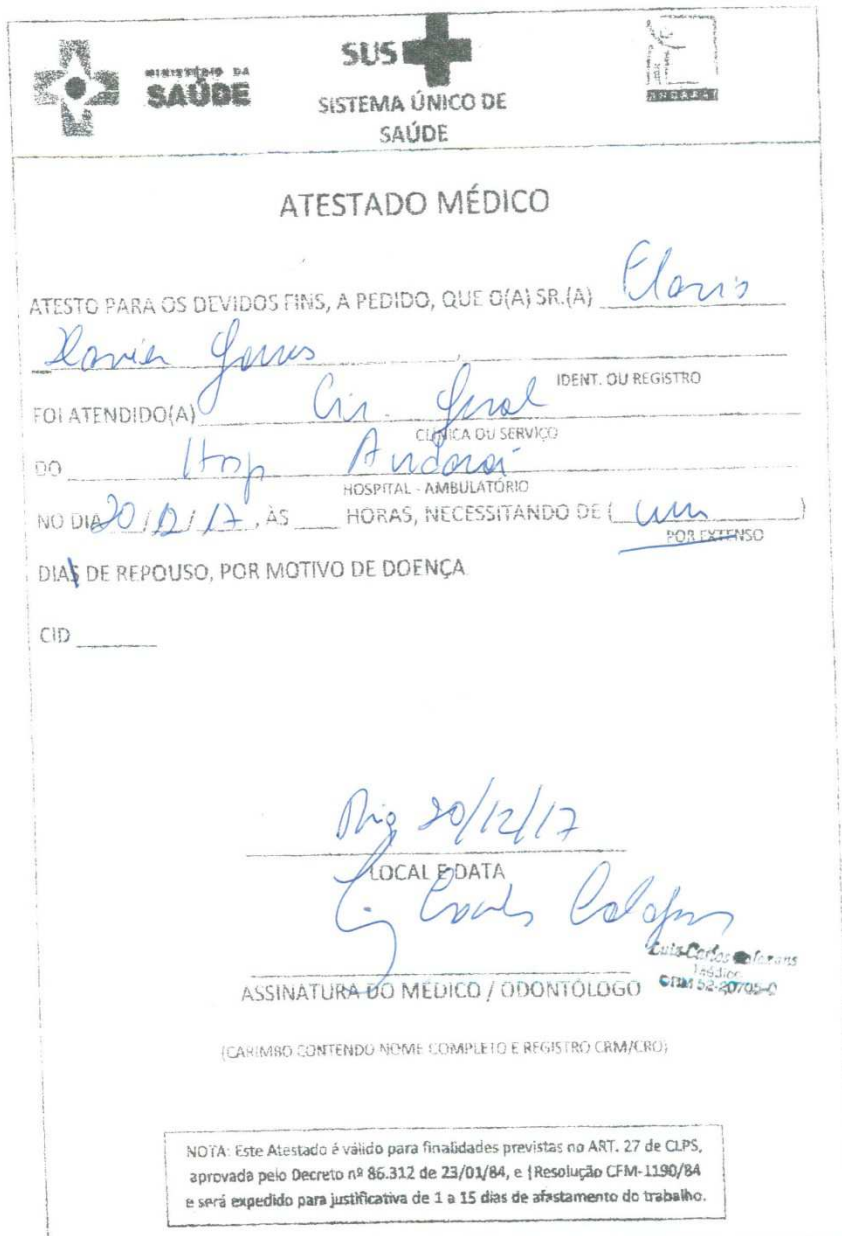 MINISTÉRIO DA
SAÚDE
SUS
SISTEMA ÚNICO DE
SAÚDE
ANDARAÍ
ATESTADO MÉDICO
ATESTO PARA OS DEVIDOS FINS, A PEDIDO, QUE O(A) SR.(A) Flavio
Xavier
IDENT. OU REGISTRO
FOI ATENDIDO(A) Cir. Geral
CLÍNICA OU SERVIÇO
DO Hosp Andaraí
HOSPITAL - AMBULATÓRIO
NO DIA 20/12/17, ÀS ____ HORAS, NECESSITANDO DE ( um )
POR EXTENSO
DIAS DE REPOUSO, POR MOTIVO DE DOENÇA
CID ______
Rio 20/12/17
LOCAL E DATA
Luis Carlos
Luis Carlos
Médico
CRM 52-20705-0
ASSINATURA DO MÉDICO / ODONTÓLOGO
(CARIMBO CONTENDO NOME COMPLETO E REGISTRO CRM/CRO)
NOTA: Este Atestado é válido para finalidades previstas no ART. 27 de CLPS,
aprovada pelo Decreto nº 86.312 de 23/01/84, e (Resolução CFM-1190/84
e será expedido para justificativa de 1 a 15 dias de afastamento do trabalho.